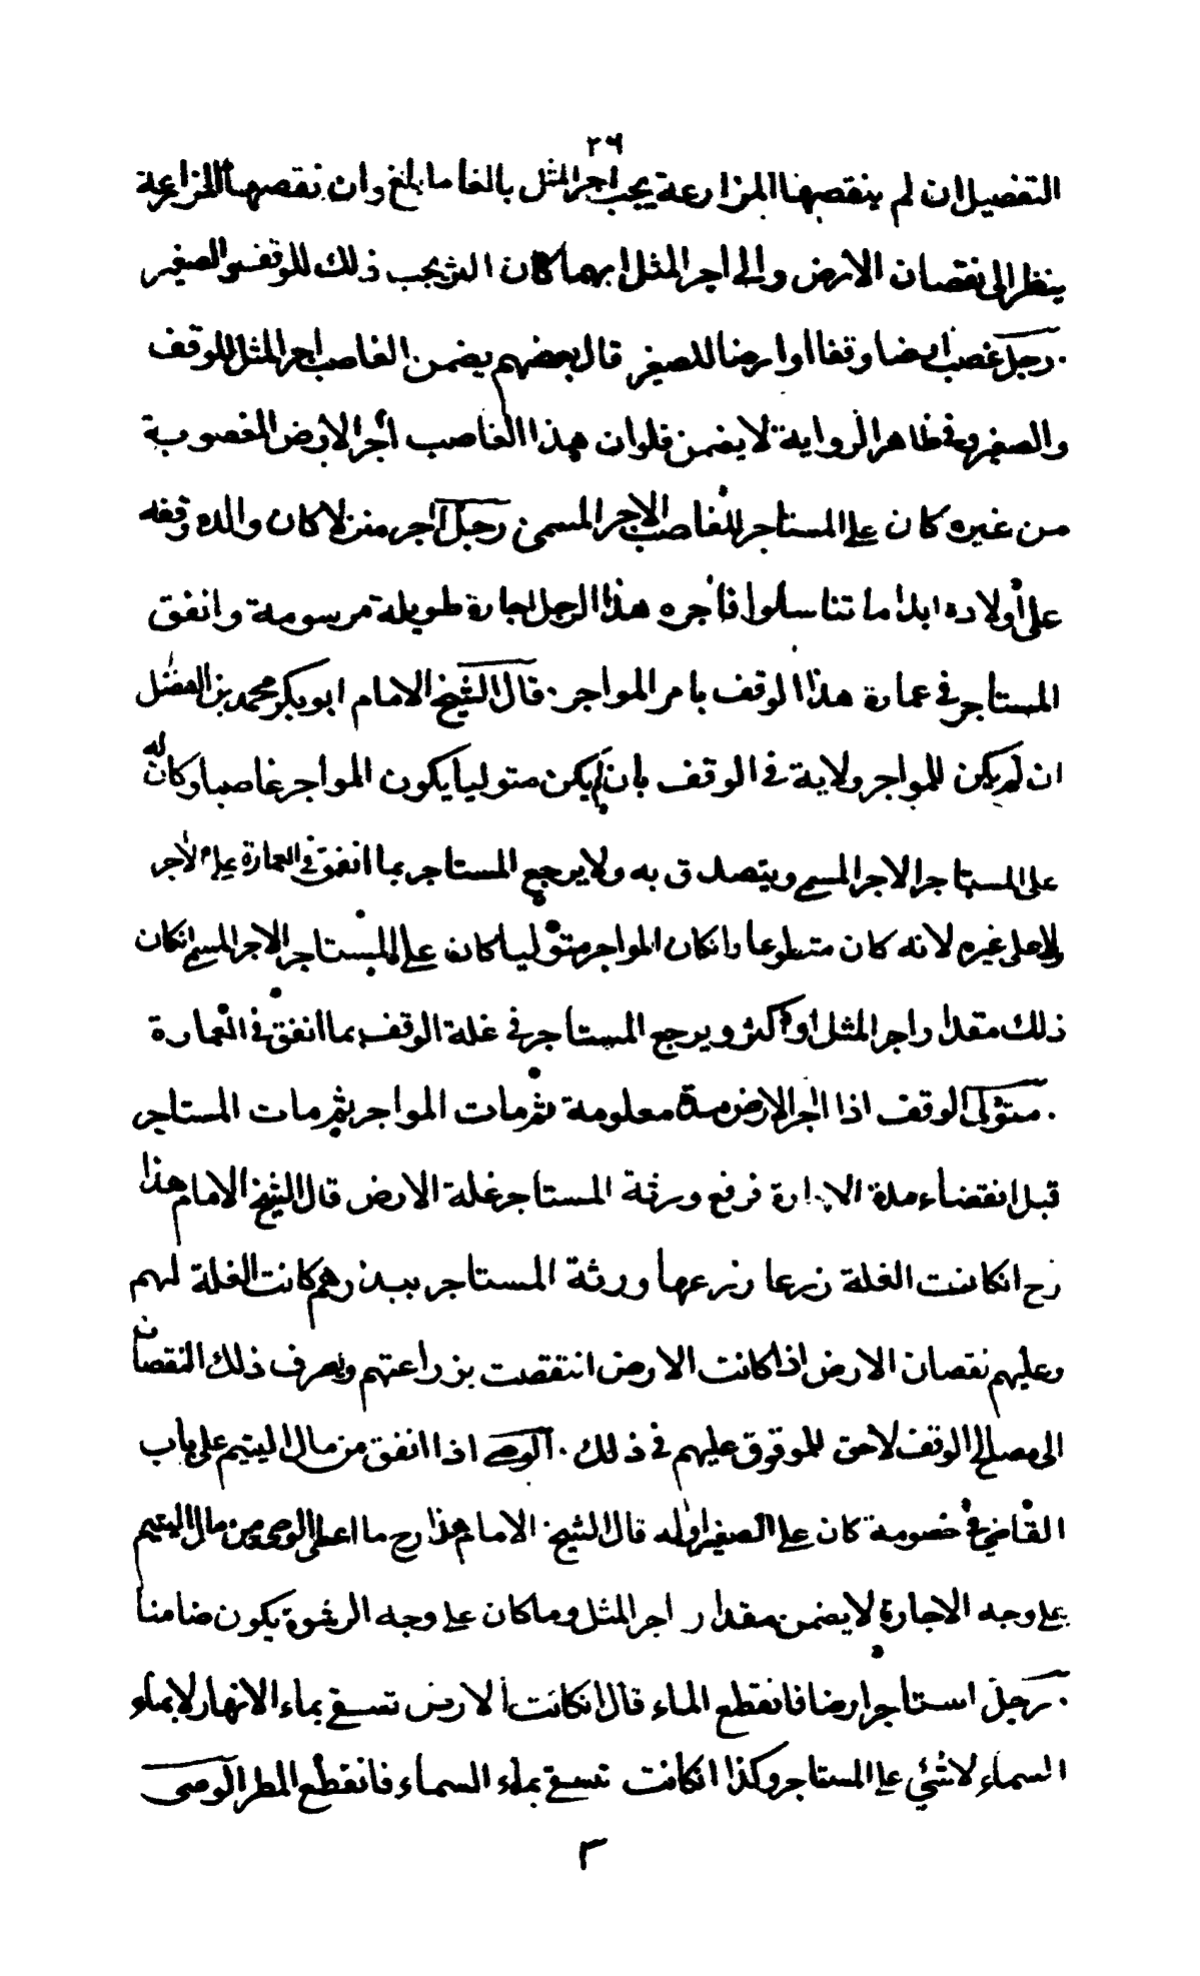 ٢٦
التفصيل ان لم ينقصها المزارعة يجب اجر المثل بالغا ما بلغ وان نقصها المزارعة
ينظر الى نقصان الارض والى اجر المثل ايهما كان اكثر يجب ذلك للوقف والصغير
. رجل غصب ارضا وقفا او ارضا للصغير قال بعضهم يضمن الغاصب اجر المثل للوقف
والصغير وفى ظاهر الرواية لا يضمن فلو ان هذا الغاصب أجر الارض المغصوبة
من غيره كان على المستاجر للغاصب الاجر المسمى رجل آجر منزلا كان والده وقفه
على أولاده ابدا ما تناسلوا فأجره هذا الرجل اجارة طويلة مرسومة وانفق
المستاجر فى عمارة هذا الوقف بامر المواجر . قال الشيخ الامام ابو بكر محمد بن الفضل
ان لم يكن للمواجر ولاية فى الوقف بان لم يكن متوليا يكون المواجر غاصبا وكان له
على المستاجر الاجر المسمى ويتصدق به ولا يرجع المستاجر بما انفق فى العمارة على الاجر
ولا على غيره لانه كان متطوعا وانكان المواجر متوليا كان على المستاجر الاجر المسمى انكان
ذلك مقدار اجر المثل او اكثر ويرجع المستاجر فى غلة الوقف بما انفق فى العمارة
. متولى الوقف اذا اجر الارض مدة معلومة ثم مات المواجر ثم مات المستاجر
قبل انقضاء مدة الاجارة فرفع ورثة المستاجر غلة الارض قال الشيخ الامام هذا
رح انكانت الغلة زرعا زرعها ورثة المستاجر ببذرهم كانت الغلة لهم
وعليهم نقصان الارض اذا كانت الارض انتقصت بزراعتهم ويصرف ذلك النقصان
الى مصالح الوقف لا حق للموقوف عليهم فى ذلك . الوصى اذا انفق من مال اليتيم على باب
القاضى فى خصومة كان على الصغير او له قال الشيخ الامام هذا رح ما اعطى الوصى من مال اليتيم
على وجه الاجارة لا يضمن مقدار اجر المثل وما كان على وجه الرشوة يكون ضامنا
. رجل استاجر ارضا فانقطع الماء قال انكانت الارض تسقى بماء الانهار لا بماء
السماء لا شئ على المستاجر وكذا انكانت تسقى بماء السماء فانقطع المطر الوصى
٣